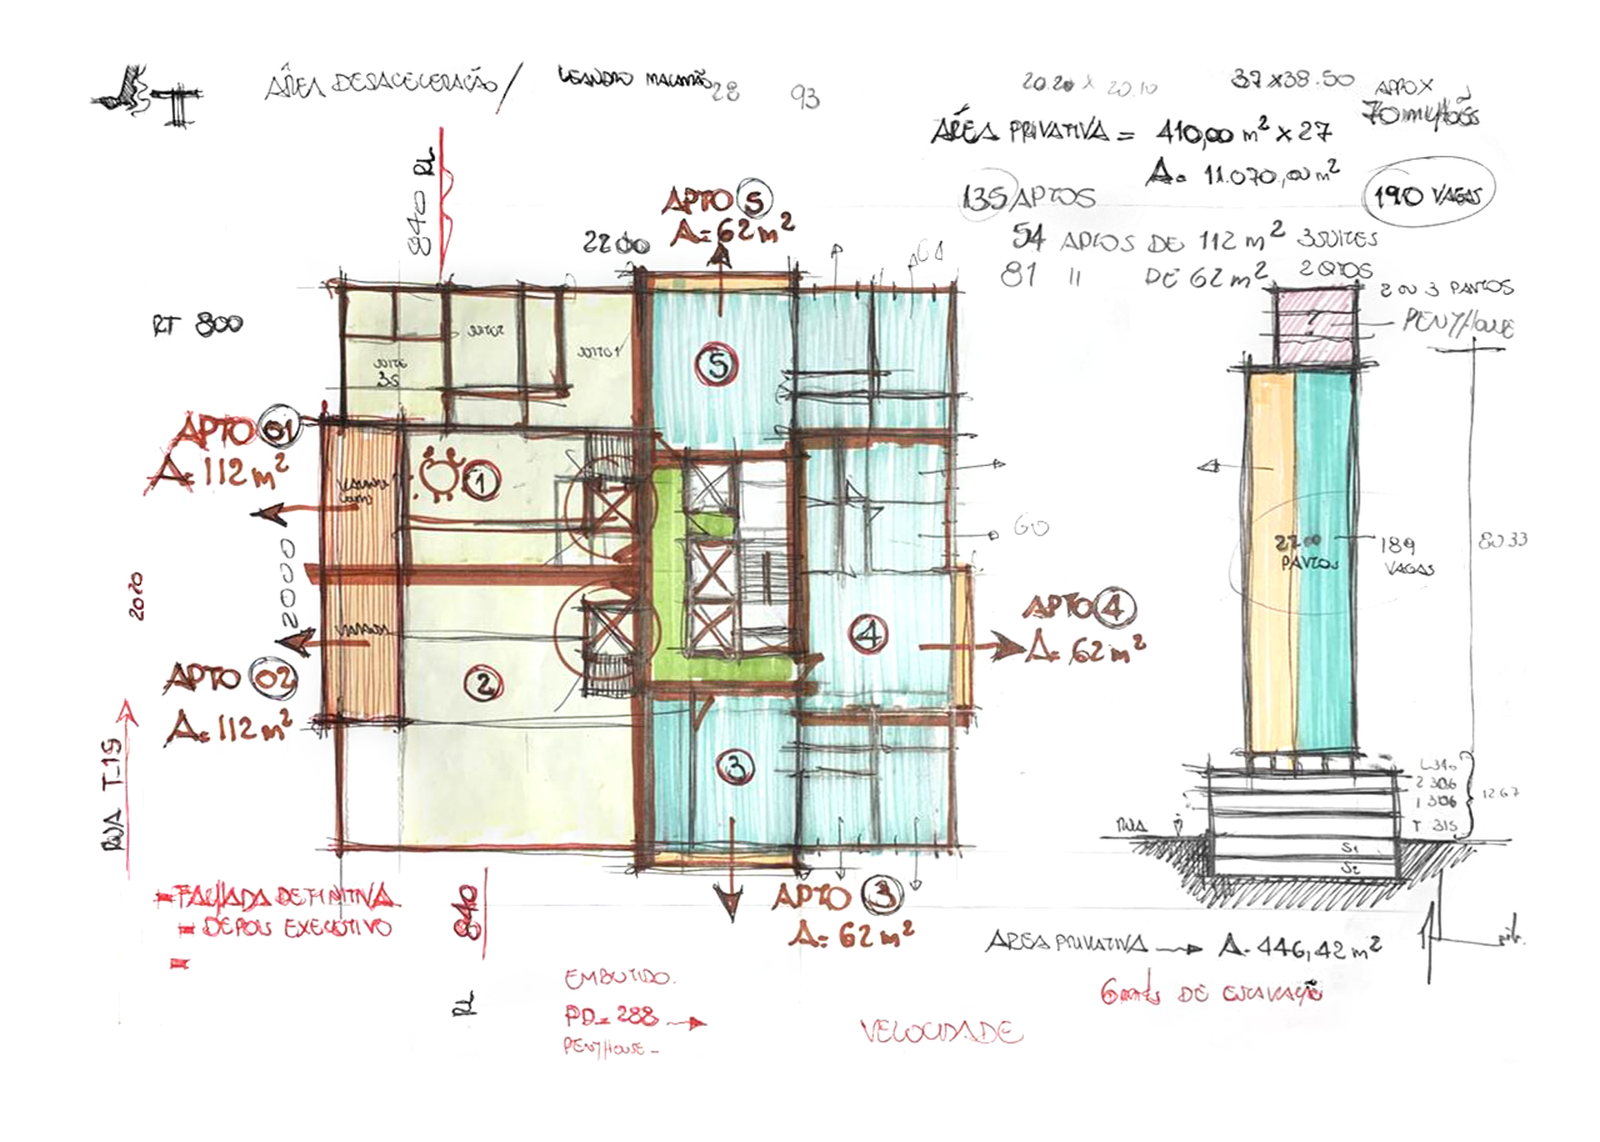 ÁREA DESACELERAÇÃO /
LEANDRO
28
93
20.20 x 20.10
37x38.50
APROX
ÁREA PRIVATIVA = 410,00 m² x 27
A= 11.070,00 m²
135 APTOS
190 VAGAS
54 APTOS DE 112 m² 3 SUITES
81 " DE 62 m² 2 QTOS
840 RL
APTO 5
A= 62 m²
2200
RT 800
2 OU 3 PAVTOS
PENTHOUSE
?
SUITE
SUITE 1
SUITE
35
5
APTO 01
A= 112 m²
1
VARANDA
60
2000
2020
27
PAVTOS
189
VAGAS
8033
VARANDA
APTO 4
A= 62 m²
4
APTO 02
A= 112 m²
2
3
RUA T-15
L 340
2 306
1 306
T 315
1267
RUA
S1
S2
- FACHADA DEFINITIVA
- DEPOIS EXECUTIVO
-
840
RL
APTO 3
A= 62 m²
ÁREA PRIVATIVA → A= 446,42 m²
DE ESCAVAÇÃO
EMBUTIDO.
PD= 288 →
PENTHOUSE -
VELOCIDADE